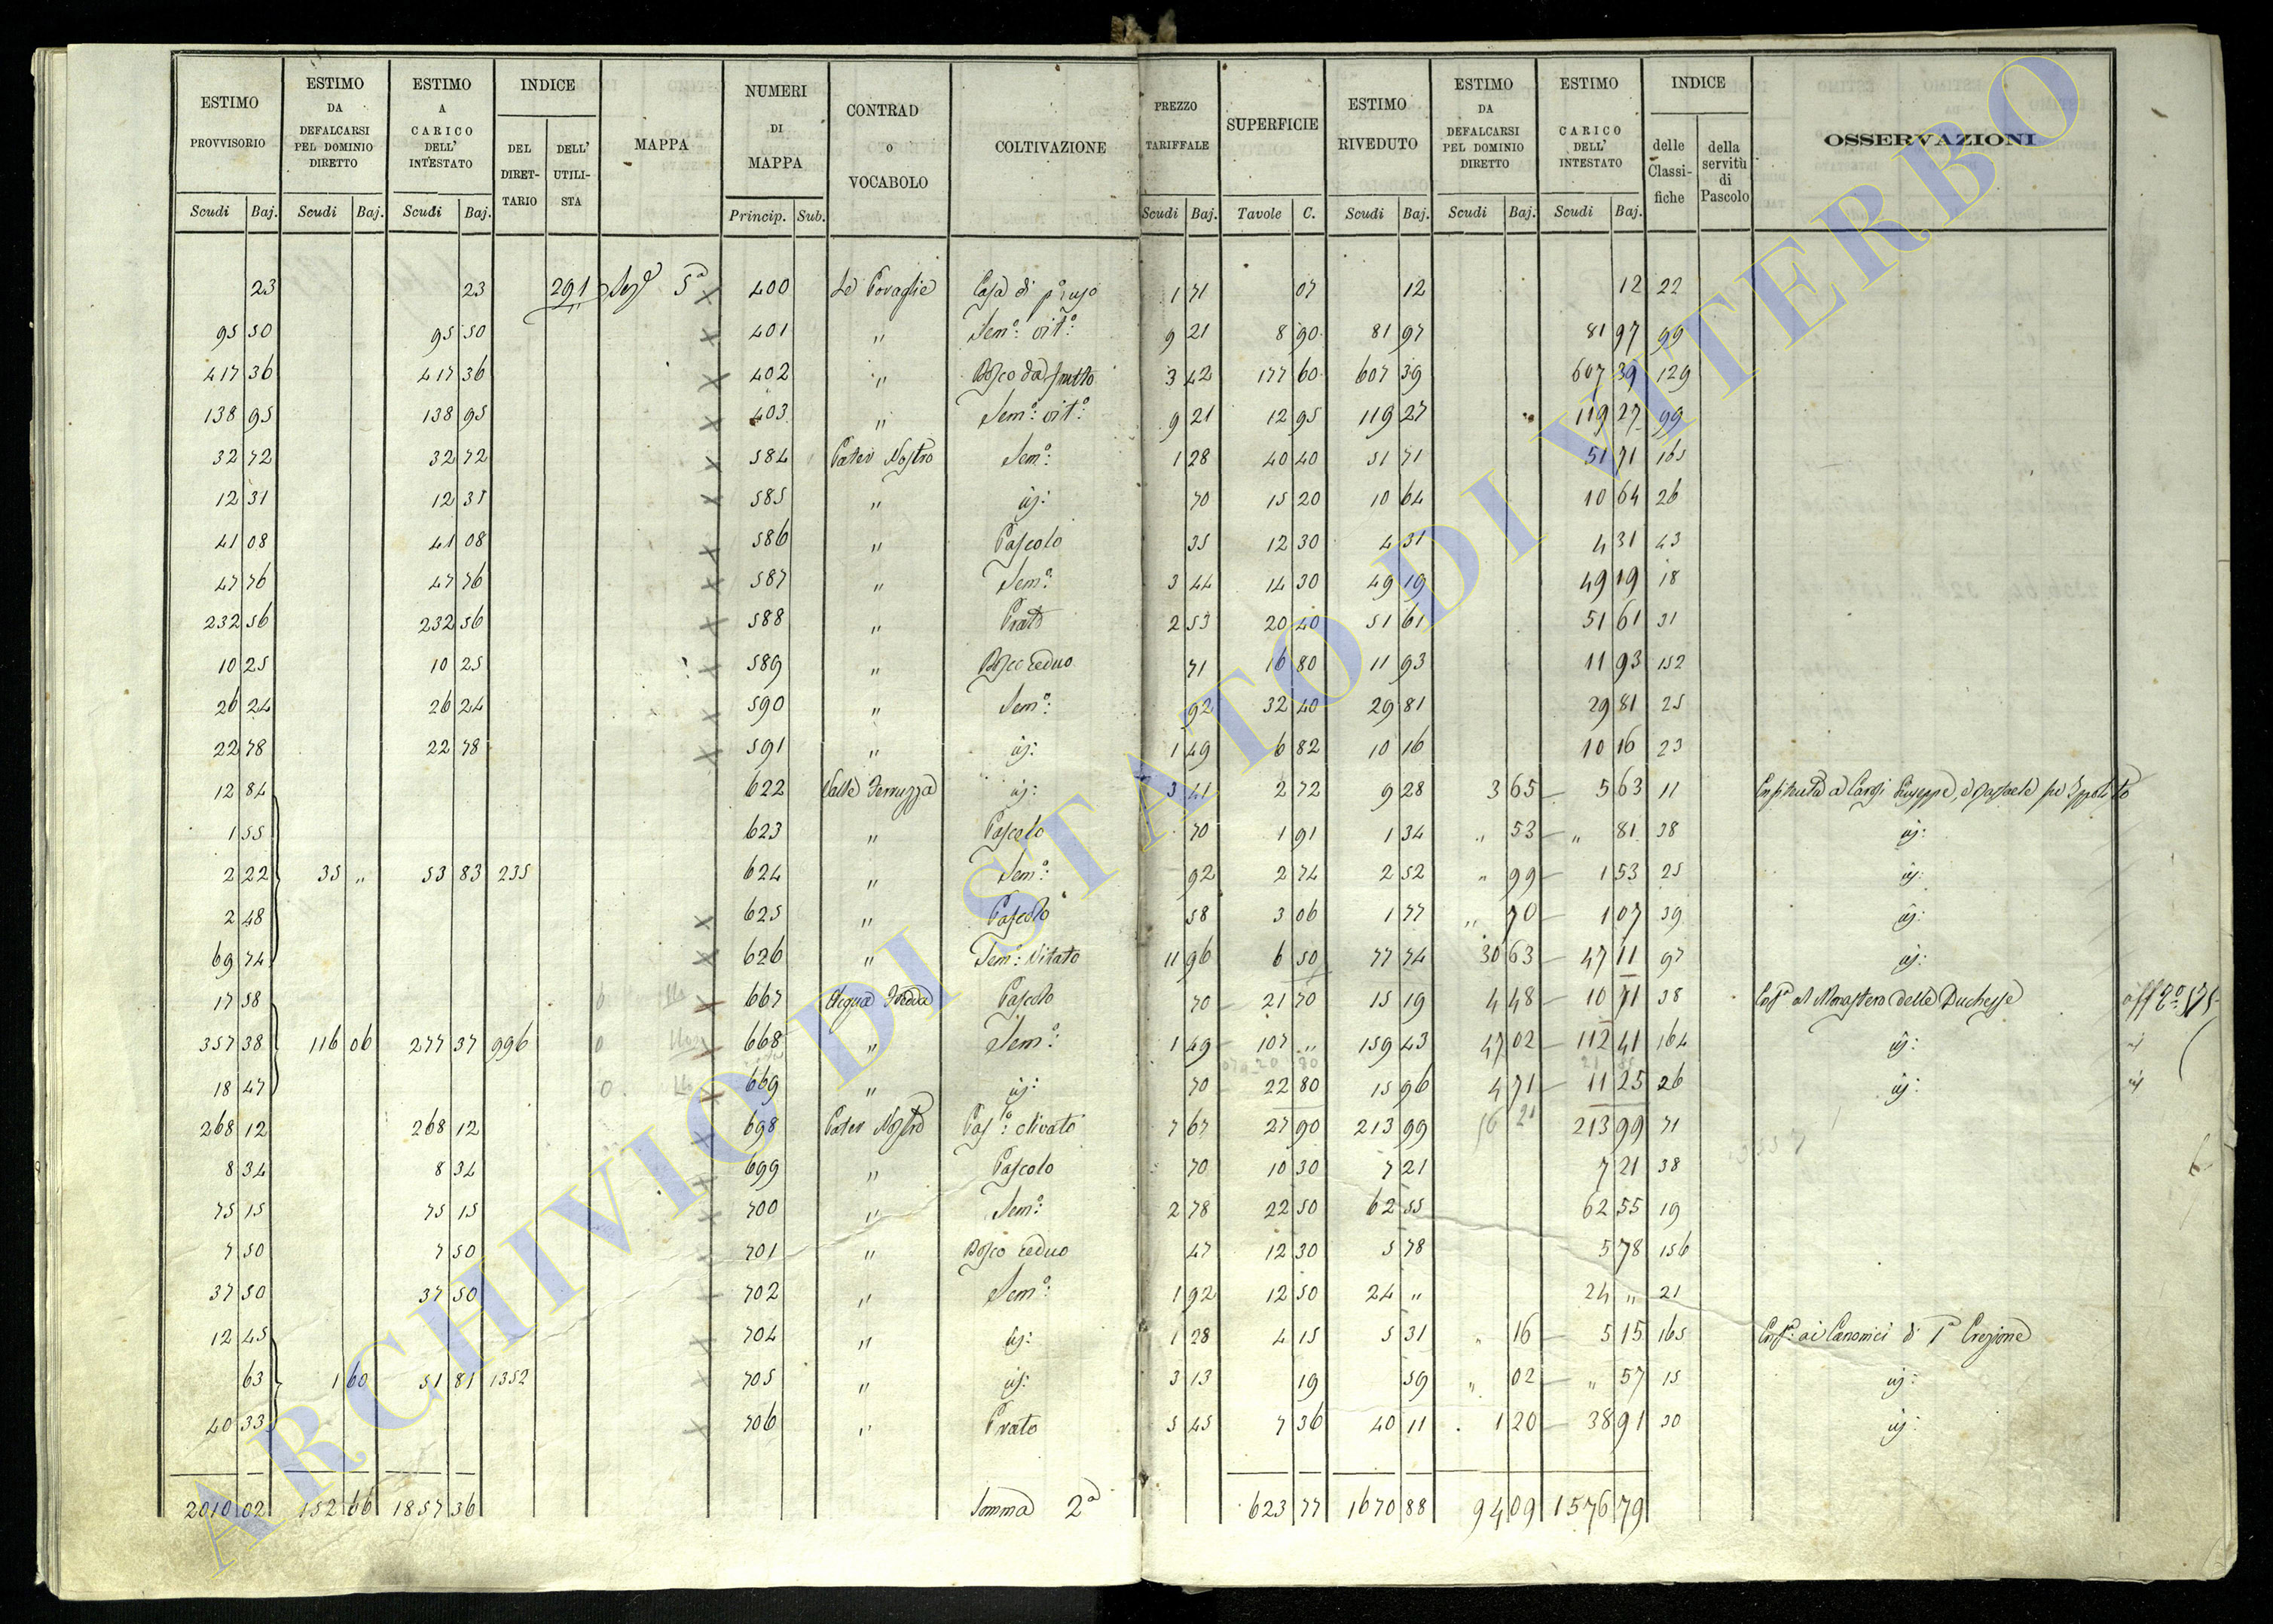 ESTIMO PROVVISORIO | ESTIMO DA DEFALCARSI PEL DOMINIO DIRETTO | ESTIMO A CARICO DELL' INTESTATO | INDICE | MAPPA | NUMERI DI MAPPA | CONTRAD o VOCABOLO | COLTIVAZIONE | PREZZO TARIFFALE | SUPERFICIE | ESTIMO RIVEDUTO | ESTIMO DA DEFALCARSI PEL DOMINIO DIRETTO | ESTIMO CARICO DELL' INTESTATO | INDICE | OSSERVAZIONI
DEL DIRET-TARIO | DELL' UTILI-STA | delle Classi-fiche | della servitù di Pascolo
Scudi Baj. | Scudi Baj. | Scudi Baj. | Princip. Sub. | Scudi Baj. | Tavole C. | Scudi Baj. | Scudi Baj. | Scudi Baj.
23 | 23 | 291 | 5ª | 400 | Casa di | 1 71 | 07 | 12 | 12 | 22
95 50 | 95 50 | 401 | " | Semº: vitº: | 9 21 | 8 90 | 81 97 | 81 97 | 99
417 36 | 417 36 | 402 | " | Bosco da frutto | 3 42 | 177 60 | 607 39 | 607 39 | 129
138 95 | 138 95 | 403 | " | Semº: vitº: | 9 21 | 12 95 | 119 27 | 119 27 | 99
32 72 | 32 72 | 584 | Pater Nostro | Semº: | 1 28 | 40 40 | 51 71 | 51 71 | 165
12 31 | 12 31 | 585 | " | id: | 70 | 15 20 | 10 64 | 10 64 | 26
41 08 | 41 08 | 586 | " | Pascolo | 35 | 12 30 | 4 31 | 4 31 | 43
47 76 | 47 76 | 587 | " | Semº: | 3 44 | 14 30 | 49 19 | 49 19 | 18
232 56 | 232 56 | 588 | " | Prato | 2 53 | 20 40 | 51 61 | 51 61 | 31
10 25 | 10 25 | 589 | " | Bosco ceduo | 71 | 16 80 | 11 93 | 11 93 | 152
26 24 | 26 24 | 590 | " | Semº: | 92 | 32 40 | 29 81 | 29 81 | 25
22 78 | 22 78 | 591 | " | id: | 1 49 | 6 82 | 10 16 | 10 16 | 23
12 84 | 622 | Valle | id: | 3 41 | 2 72 | 9 28 | 3 65 | 5 63 | 11 | Giuseppe, e
1 55 | 623 | " | Pascolo | 70 | 1 91 | 1 34 | " 53 | " 81 | 38 | id:
2 22 | 35 " | 53 83 | 235 | 624 | " | Semº: | 92 | 2 74 | 2 52 | " 99 | 1 53 | 25 | id:
2 48 | 625 | " | Pascolo | 58 | 3 06 | 1 77 | " 70 | 1 07 | 39 | id:
69 74 | 626 | " | Semº: Vitato | 11 96 | 6 50 | 77 74 | 30 63 | 47 11 | 97 | id:
17 58 | 667 | Acqua | Pascolo | 70 | 21 70 | 15 19 | 4 48 | 10 71 | 38 | Enfª al Monastero delle Duchesse
357 38 | 116 06 | 277 37 | 996 | 668 | " | Semº: | 1 49 | 107 " | 159 43 | 47 02 | 112 41 | 164 | id:
18 47 | 669 | " | id: | 70 | 22 80 | 15 96 | 4 71 | 11 25 | 26 | id:
268 12 | 268 12 | 698 | Pater Nostro | Pasº: olivato | 7 67 | 27 90 | 213 99 | 213 99 | 71
8 34 | 8 34 | 699 | " | Pascolo | 70 | 10 30 | 7 21 | 7 21 | 38
75 15 | 75 15 | 700 | " | Semº: | 2 78 | 22 50 | 62 55 | 62 55 | 19
7 50 | 7 50 | 701 | " | Bosco ceduo | 47 | 12 30 | 5 78 | 5 78 | 156
37 50 | 37 50 | 702 | " | Semº: | 1 92 | 12 50 | 24 " | 24 " | 21
12 45 | 704 | " | id: | 1 28 | 4 15 | 5 31 | " 16 | 5 15 | 165 | Enfª: ai Canonici di 1ª Erezione
63 | 1 60 | 51 81 | 1352 | 705 | " | id: | 3 13 | 19 | 59 | " 02 | " 57 | 15 | id:
40 33 | 706 | " | Prato | 5 45 | 7 36 | 40 11 | 1 20 | 38 91 | 30 | id:
2010 02 | 152 66 | 1857 36 | Somma 2ª | 623 77 | 1670 88 | 94 09 | 1576 79
ARCHIVIO DI STATO DI VITERBO